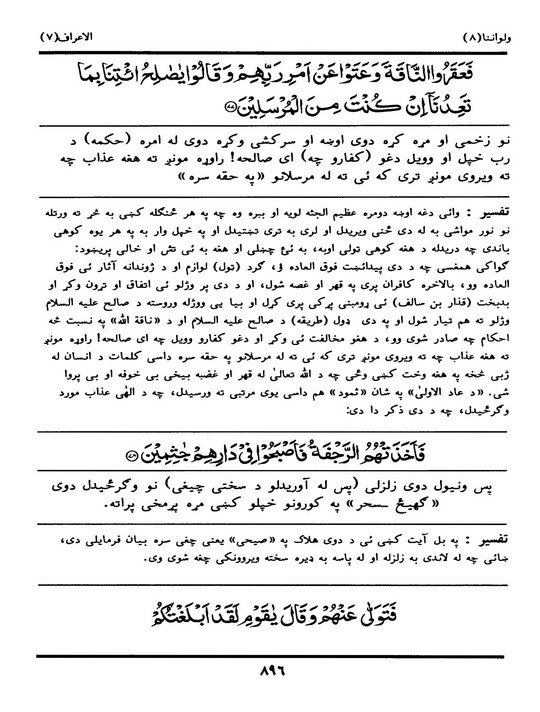 ولواننا(۸) الاعراف(۷)
فَعَقَرُوا النَّاقَةَ وَعَتَوْا عَنْ اَمْرِ رَبِّهِمْ وَقَالُوْا يٰصٰلِحُ ائْتِنَا بِمَا
تَعِدُنَآ اِنْ كُنْتَ مِنَ الْمُرْسَلِيْنَ ۝۷۷
نو زخمی او مره کړه دوی اوښه او سرکشی وکړه دوی له امره (حکمه) د
رب خپل او وویل دغو (کفارو چه) ای صالحه! راوړه مونږ ته هغه عذاب چه
ته ویروی مونږ تری که ئی ته له مرسلانو «په حقه سره»
تفسیر : وائی دغه اوښه دومره عظیم الجثه لویه او ببره وه چه په هر څنګله کښی به څر ته ورتله
نو نور مواشی به له دی څنی ویریدل او لری به تری تښتیدل او په خپل وار به په هر یوه کوهی
باندی چه دریدله د هغه کوهی تولی اوبه، به ئی چښلی او هغه به ئی تش او خالی پریښود:
ګواکی همغسی چه د دی پیدائښت فوق العاده ؤ، ګرد (تول) لوازم او د ژوندانه آثار ئی فوق
العاده وو، بالاخره کافران پری په قهر او غصه شول، او د دی پر وژلو ئی اتفاق او تړون وکړ او
بدبخت (قذار بن سالف) ئی ړومبنی پرکی پری کړل او بیا یی ووژله وروسته د صالح علیه السلام
وژلو ته هم تیار شول او په دی ډول (طریقه) د صالح علیه السلام او د «ناقة الله» په نسبت څه
احکام چه صادر شوی وو، د هغو مخالفت ئی وکړ او دغو کفارو وویل چه ای صالحه! راوړه مونږ
ته هغه عذاب چه ته ویروی مونږ تری که ئی ته له مرسلانو په حقه سره داسی کلمات د انسان له
ژبی څخه په هغه وخت کښی وځی چه د الله تعالیٰ له قهر او غضبه بیخی بی خوفه او بی پروا
شی. «د عاد الاولیٰ» په شان «ثمود» هم داسی یوی مرتبی ته ورسیدل، چه د الهٰی عذاب مورد
وګرځیدل، چه د دی ذکر دا دی:
فَاَخَذَتْهُمُ الرَّجْفَةُ فَاَصْبَحُوْا فِيْ دَارِهِمْ جٰثِمِيْنَ ۝۷۸
پس ونیول دوی زلزلی (پس له آوریدلو د سختی چیغی) نو وګرځیدل دوی
«ګهیځ سحر» په کورونو خپلو کښی مره پړمخی پراته.
تفسیر : په بل آیت کښی ئی د دوی هلاک په «صیحی» یعنی چغی سره بیان فرمایلی دی،
ښائی چه له لاندی به زلزله او له پاسه به ډیره سخته ویروونکی چغه شوی وی.
فَتَوَلّٰى عَنْهُمْ وَقَالَ يٰقَوْمِ لَقَدْ اَبْلَغْتُكُمْ
۸۹۶